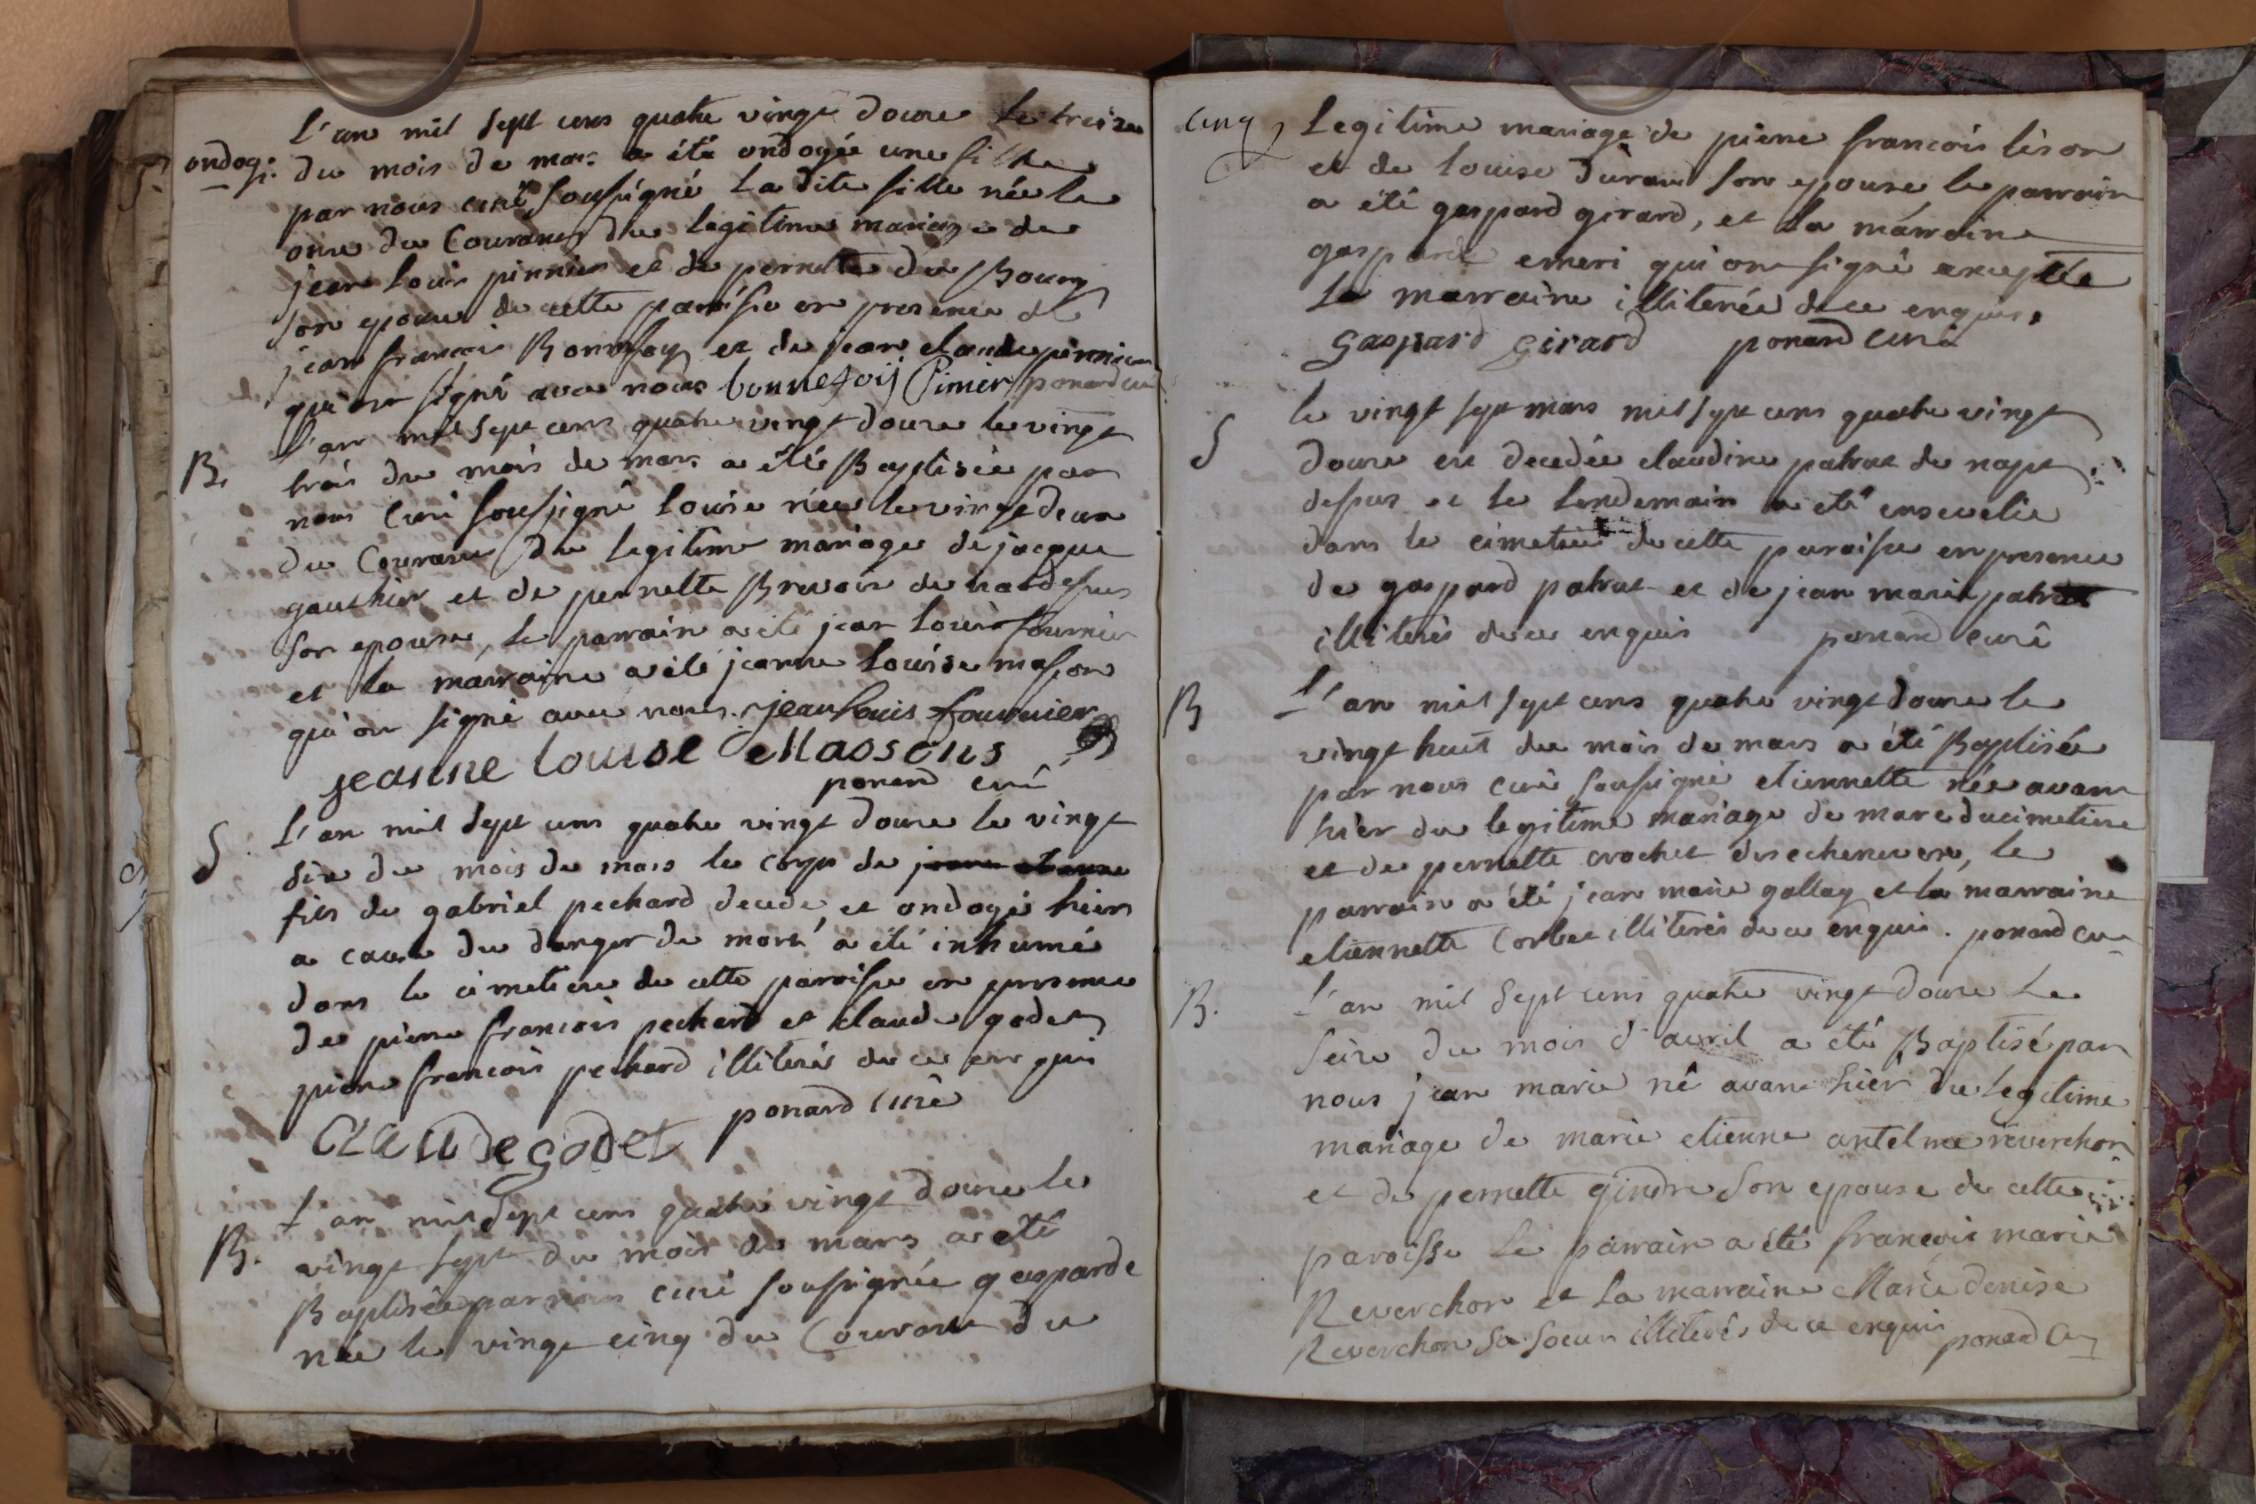 L'an mil sept cens quatre vingt douze le treize
ondoy: du mois de mars a été ondoyée une fille
par nous curé soussigné la dite fille née le
onze du Courant du legitime mariage de
jean louis pinnier et de pernette du Bourg
son epouse de cette paroisse en presence de
jean francois Bonnefoy et de jean claude pinnier
qui ont signé avec nous bonnefoij Pinier ponard cu
l'an mil sept cens quatre vingt douze le vingt
B. trois du mois de mars a été Baptisée par
nous Curé soussigné louise née le vingt deux
du Courant du legitime mariage de jacque
gauthier et de pernette
son epouse, le parrain a été jean louis fournier
et la marraine a été jeanne louise masson
qui ont signé avec nous. jean louis fournier
jeanne louise Massons
ponard curé
S L'an mil sept cens quatre vingt douze le vingt
six du mois de mars le corps de
fils de gabriel pechard decedé, et ondoyé hier
a cause du danger de mort a été inhumé
dans le cimetiere de cette paroisse en presence
de pierre francois pechard et claude godet
pierre francois pechard illiterés de ce enquis
ponard curé
CLAUDe godet
L'an mil sept cens quatre vingt douze le
B. vingt sept du mois de mars a été
Baptisée par nous curé soussignée gasparde
née le vingt cinq du Courant du
cinq Legitime mariage de pierre francois lison
et de louise durand son epouse le parrain
a été gaspard girard, et la marraine
gasparde emeri qui ont signé excepté
la marraine illiterée de ce enquis.
gaspard girard ponard curé
le vingt sept mars mil sept cens quatre vingt
S douze est decedée claudine patrat de
dessus et le lendemain a été ensevelie
dans le cimetiere de cette paroisse en presence
de gaspard patrat et de jean marie patrat
illiterés de ce enquis ponard curé
B L'an mil sept cens quatre vingt douze le
vingt huit du mois de mars a été Baptisée
par nous curé soussigné etiennette née avant
hier du legitime mariage de marc ducimetiere
et de pernette crochet, le
parrain a été jean marie gallay et la marraine
etiennette Corbet illiterés de ce enquis. ponard cu
B. L'an mil sept cens quatre vingt douze le
seize du mois d'avril a été Baptisé par
nous jean marie né avant hier du legitime
mariage de marie etienne antelme reverchon
et de pernette gindre son epouse de cette
paroisse le parrain a été francois marie
Reverchon et la marraine Marie denise
Reverchon sa soeur illiterés de ce enquis ponard cu